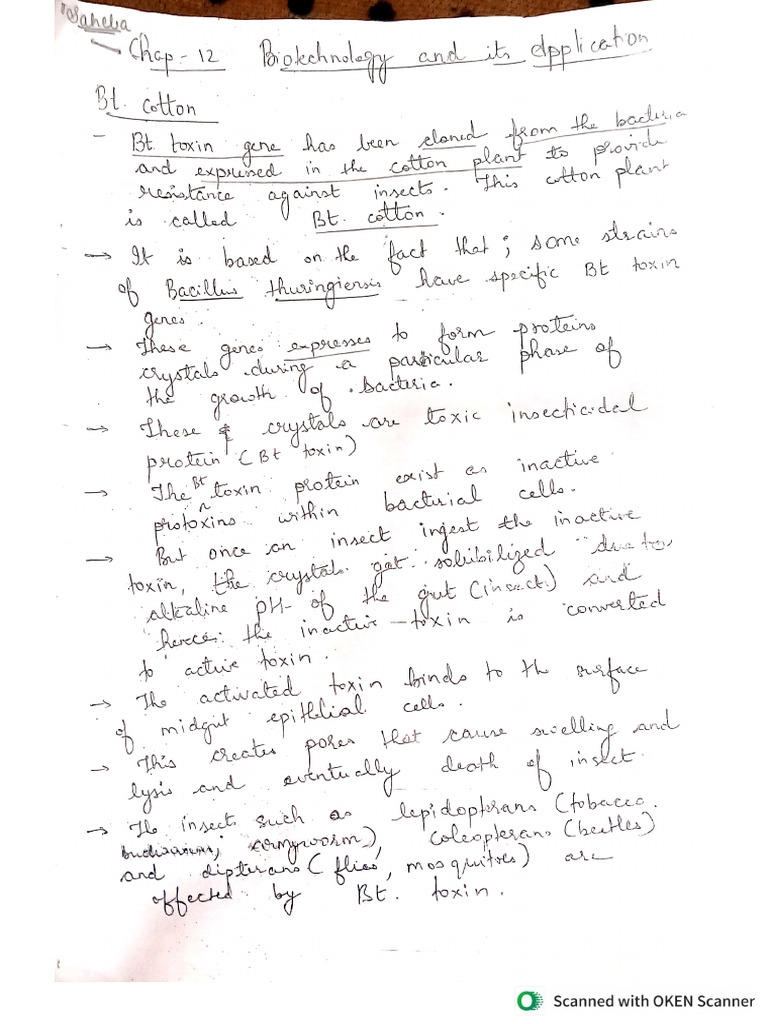 Saheba
Chap - 12 Biotechnology and its Application
Bt. cotton
- Bt toxin gene has been cloned from the bacteria
and expressed in the cotton plant to provide
resistance against insects. This cotton plant
is called Bt. cotton.
→ It is based on the fact that; some strains
of Bacillus thuringiensis have specific Bt toxin
genes.
→ These genes expresses to form proteins
crystals during a particular phase of
the growth of bacteria.
→ These crystals are toxic insecticidal
protein (Bt toxin)
→ The Bt toxin protein exist as inactive
protoxins within bacterial cells.
→ But once an insect ingest the inactive
toxin, the crystals get solubilized due to
alkaline pH of the gut (insect) and
hence: the inactive toxin is converted
to active toxin.
→ The activated toxin binds to th surface
of midgut epithelial cells.
→ This creates pores that cause swelling and
lysis and eventually death of insect.
→ The insect such as lepidopterans (tobacco
budworms, armyworm), coleopterans (beetles)
and dipterans (flies, mosquitoes) are
affected by Bt. toxin.
Scanned with OKEN Scanner